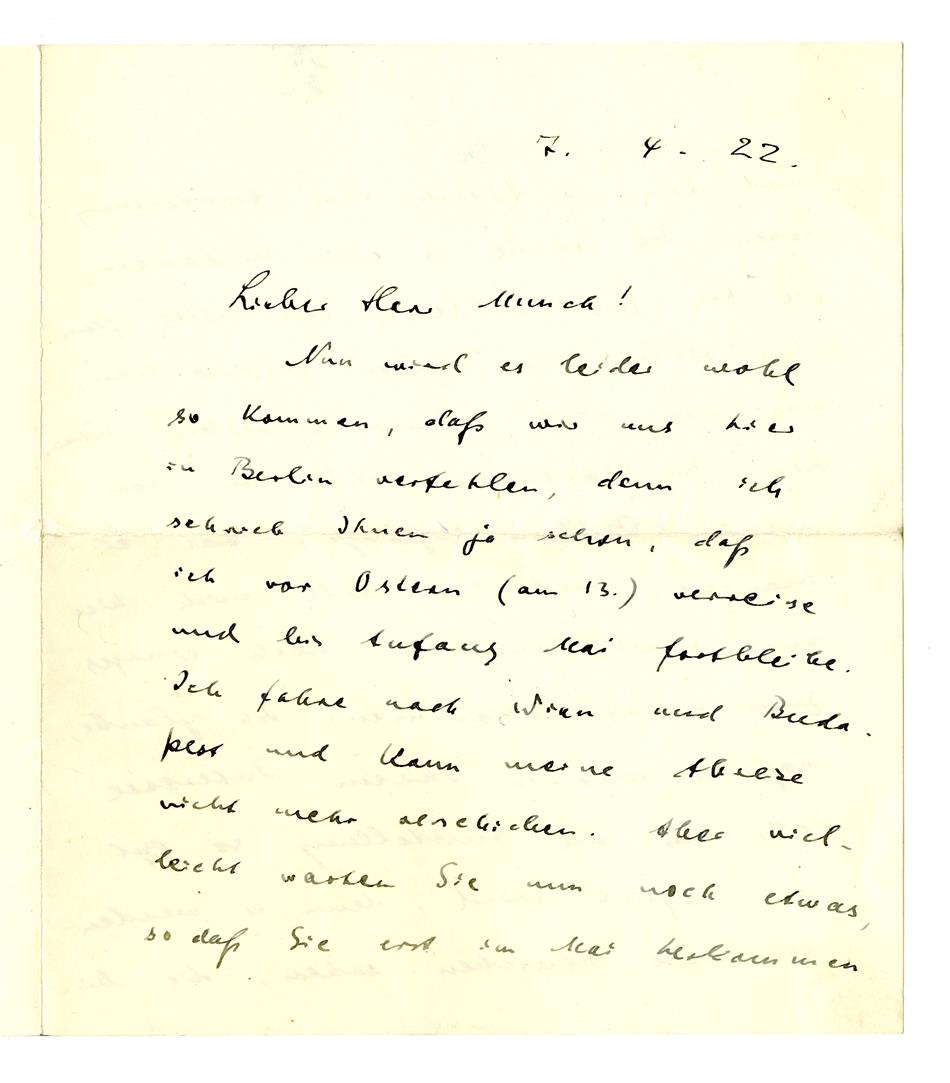 7. 4. 22.
Lieber Herr Munch!
Nun wird es leider wohl
so kommen, daß wir uns hier
in Berlin verfehlen, denn ich
schrieb Ihnen ja schon, daß
ich vor Ostern (am 13.) verreise
und bis Anfang Mai fortbleibe.
Ich fahre nach Wien und Buda-
pest und kann meine Abreise
nicht mehr verschieben. Aber viel-
leicht warten Sie nun noch etwas,
so daß Sie erst im Mai herkommen